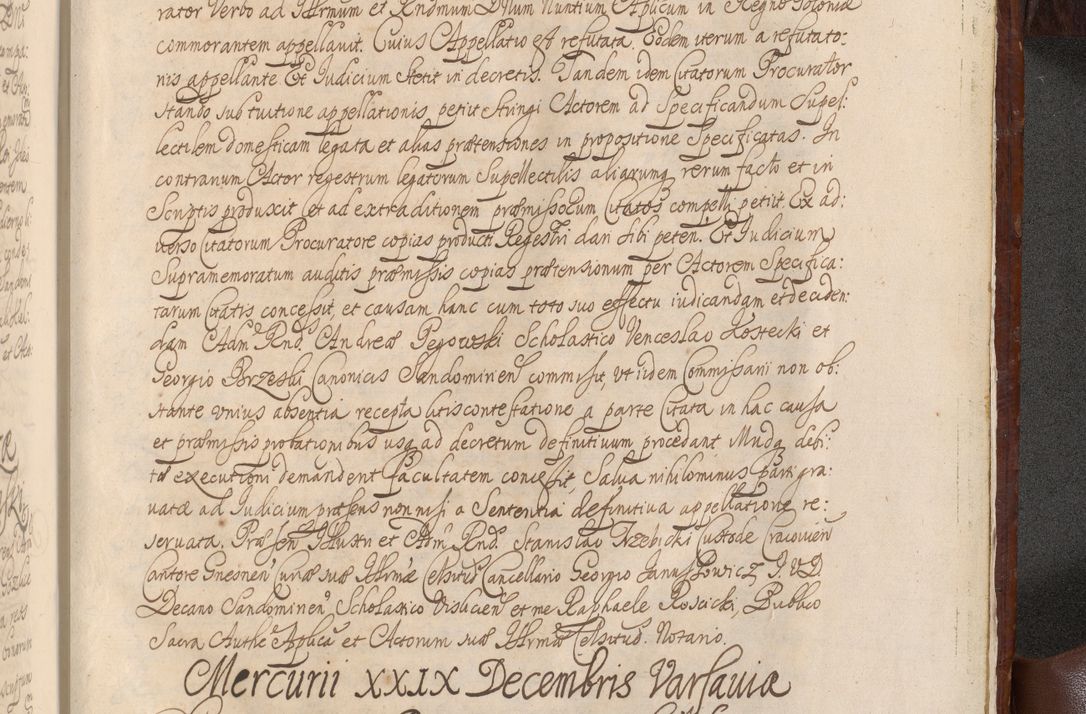 rator Verbo ad Illrmum et Rndmum D Num Nuntium Aplicum in Regno Poloniæ
commorantem appellavit. Cuius Appellatio est refutata. Eodem iterum a refutato:
nis appellante Et Iudicium stetit in decretis. Tandem idem Citatorum Procurator
stando sub tuitione appellationis petiit stringi Actorem ad Specificandum Supel:
lectilem domesticam legata et alias prætensiones in propositione Specificatas. In
contrarium Actor regestrum legatorum Supellectilis aliarumq rerum facto et in
Scriptis produxit et ad extraditionem præmissorum Citatos compelli petiit Ex ad:
verso Citatorum Procuratore copias producti Regestri dari sibi peten. Et Iudicium
Supramemoratum auditis præmissis copias prætensionum per Actorem Specifica:
tarum Citatis concessit, et causam hanc cum toto suo effectu iudicandam et deciden:
dam Adm Rnd. Andreæ Pegowski Scholastico Venceslao Kostecki et
Georgio Borzeski Canonicis Sandomirien commisit Vt iidem Commissarii non ob:
stante vnius absentia recepta litiscontestatione a parte Citata in hac causa
et præmissis probationibus usq ad decretum definitivum procedant Mudq debi:
tæ executioni demandent Facultatem concessit, Salva nihilominus parti gra:
vatæ ad Iudicium præsens non nisi a Sententia definitiva appellatione re:
servata, Præsen Illustri et Adm Rnd. Stanislao Trzebicki Custode Cracovien
Cantore Gnesnen Curiæ suæ Illrmæ Celsitud Cancellario Georgio Januszowicz I. V D
Decano Sandomirien Scholastico Vislicien et me Raphaele Roscicki, Publico
Sacra Authe Aplica et Actorum suæ Illrmæ Celsitud. Notario.
Mercurii XXIX Decembris Varsaviæ